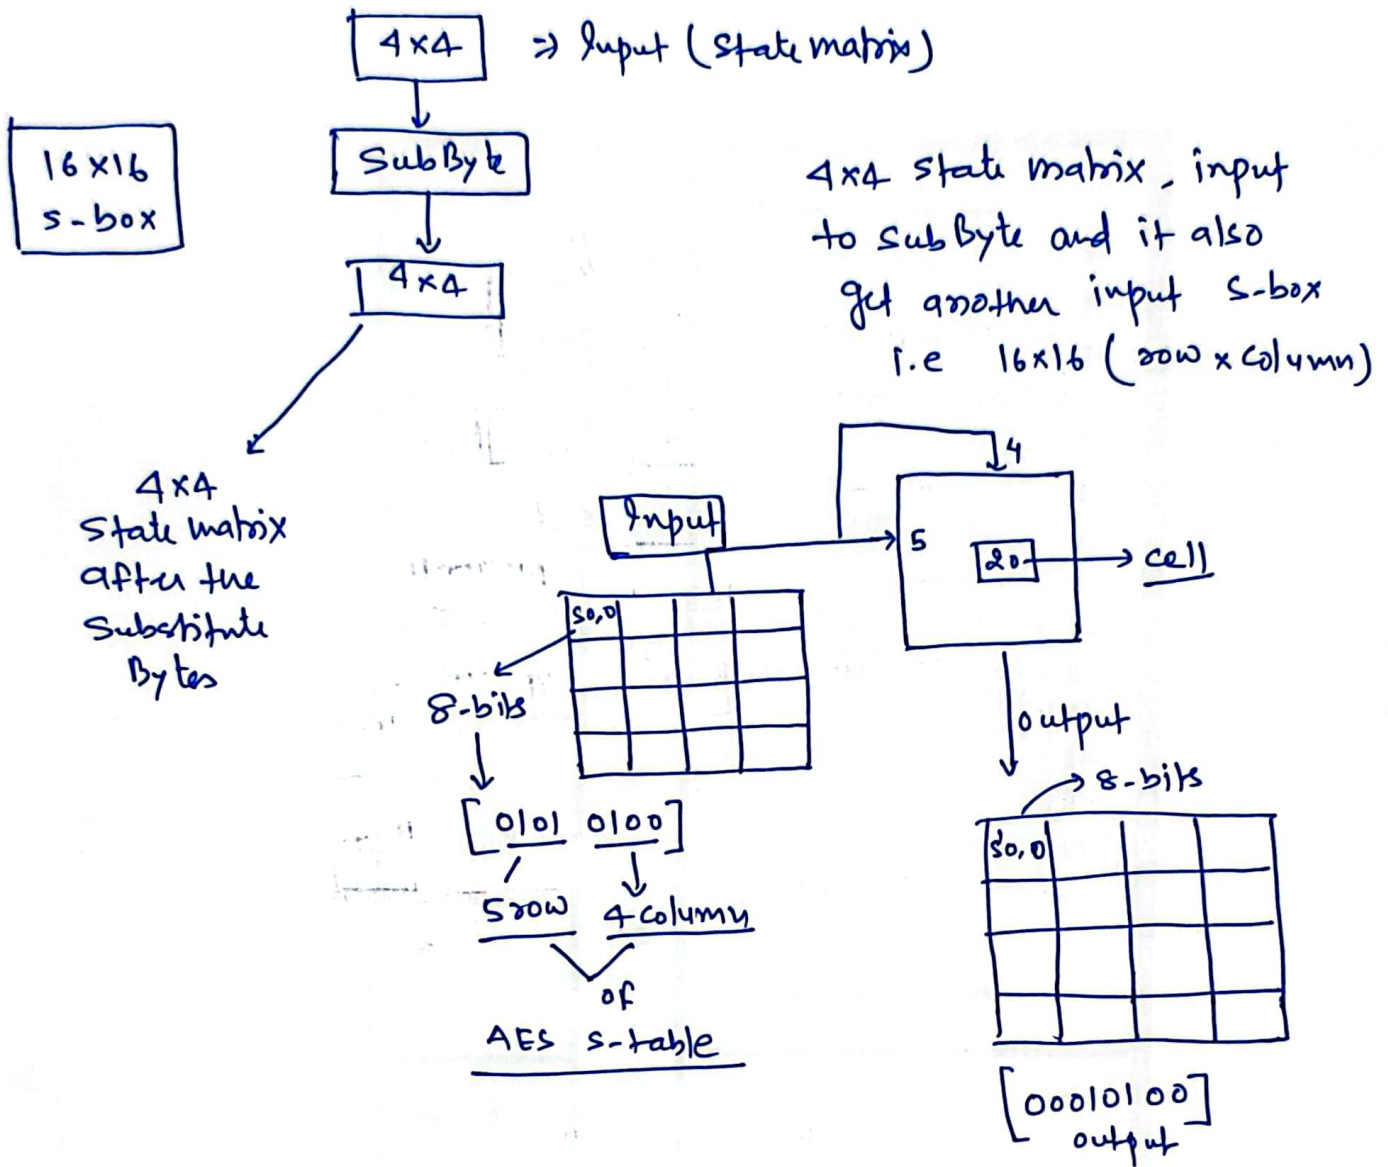 4×4 ⇒ Input (State matrix)
16×16
s-box
SubByte
4×4
4×4 state matrix, input
to subByte and it also
get another input S-box
i.e 16×16 (row × column)
4×4
State matrix
after the
Substitute
Bytes
Input
4
5
20
cell
S0,0
8-bits
[0101 0100]
5 row 4 column
of
AES S-table
output
8-bits
S0,0
[00010100]
output